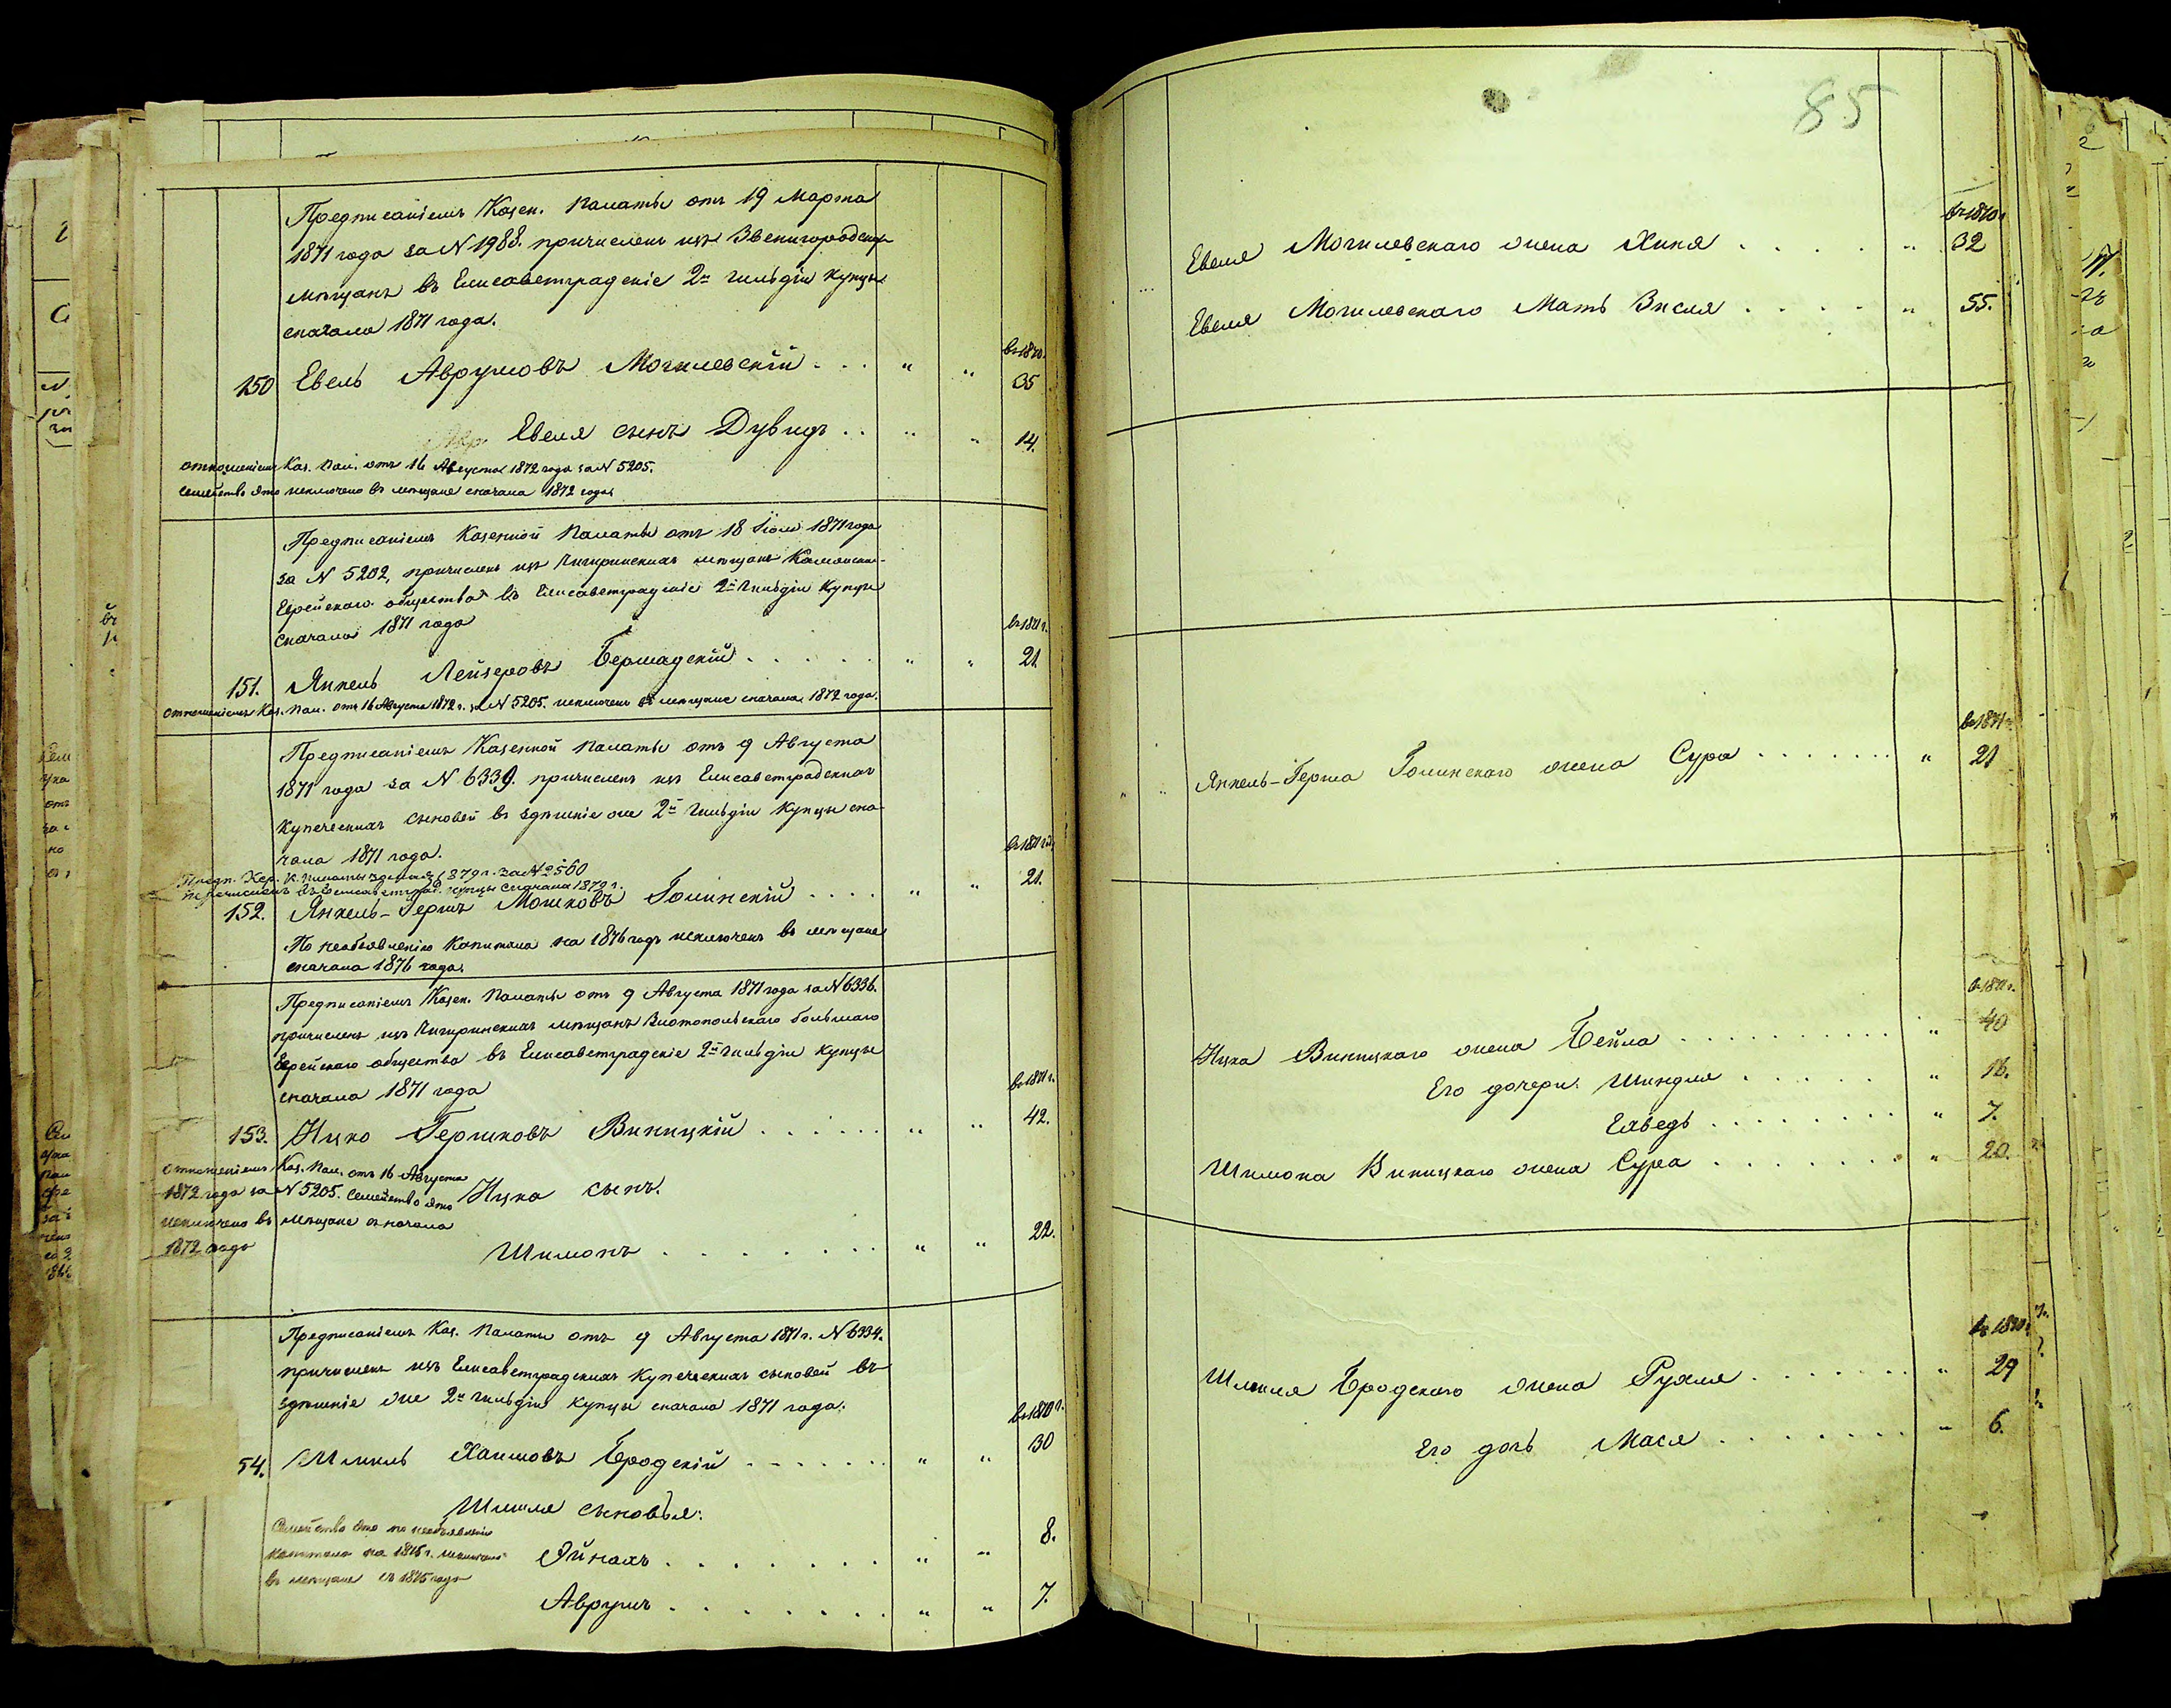 Предписаніемъ Казен. Палаты отъ 19 Марта
1871 года за N 1988. причисленъ изъ Звенигородских
мѣщанъ въ Елисаветградскіе 2й гильдіи купцы
сначала 1871 года.
въ 1870.
150 Евель Аврумовъ Могилевскій . . . " " 35
Евеля сынъ Дувидъ . . " " 14.
отношеніемъ Каз. Пал. отъ 16 Августа 1872 года за N 5205.
семейство это исключено въ мѣщане сначала 1872 года.
Предписаніемъ Казенной Палаты отъ 18 Іюля 1871 года
за N 5202, причисленъ изъ Чигиринскихъ мѣщанъ
Еврейскаго общества въ Елисаветградскіе 2й гильдіи купцы
сначала 1871 года
въ 1871 г.
151. Янкель Лейзеровъ Бершадскій . . . . . " " 21
отношеніемъ Каз. Пал. отъ 16 Августа 1872 г. за N 5205. исключенъ въ мѣщане сначала 1872 года.
Предписаніемъ Казенной Палаты отъ 9 Августа
1871 года за N 6339. причисленъ изъ Елисаветградскихъ
купеческихъ сыновей въ здѣшніе же 2й гильдіи купцы сна-
чала 1871 года.
въ 1871 г.
Предп. Хер. К. Палаты 1879 г. за N 2560
перечисленъ въ Елисаветград. купцы сначала 1879 г.
152. Янкель-Гершъ Мошковъ Голинскій . . . . " " 21.
По необъявленію капитала на 1876 годъ исключенъ въ мѣщане
сначала 1876 года.
Предписаніемъ Казен. Палаты отъ 9 Августа 1871 года за N 6336.
причисленъ изъ Чигиринскихъ мѣщанъ Златопольскаго большаго
Еврейскаго общества въ Елисаветградскіе 2й гильдіи купцы
сначала 1871 года
въ 1871 г.
153. Ицко Гершковъ Виницкій . . . . . . " " 42.
отношеніемъ Каз. Пал. отъ 16 Августа
1872 года за N 5205. семейство это
исключено въ мѣщане сначала
1872 года
Ицка сынъ.
Шимонъ . . . . . . . " " 22.
Предписаніемъ Каз. Палаты отъ 9 Августа 1871 г. N 6334.
причисленъ изъ Елисаветградскихъ купеческихъ сыновей въ
здѣшніе же 2й гильдіи купцы сначала 1871 года.
въ 1870 г.
54. Шмиль Хаимовъ Бродскій . . . . . . . " " 30
Шмиля сыновья:
Семейство это по необъявленію
капитала на 1875 г. исключено
въ мѣщане съ 1875 года
Эйнахъ . . . . . . . . " " 8.
Аврумъ . . . . . . . . " " 7.
85
въ 1870 г.
Евеля Могилевскаго жена Хиня . . . . . " 32
Евеля Могилевскаго Мать Зисля . . . . . " 55.
въ 1871 г.
" " Янкель-Герша Голинскаго жена Сура . . . . . . . " 21
въ 1871 г.
Ицка Виницкаго жена Бейла . . . . . . . . . " 40
Его дочери: Шиндля . . . . . . " 16.
Елведь . . . . . . . . " 7.
Шимона Виницкаго жена Сура . . . . . . . . " 20.
въ 1870 г.
Шмиля Бродскаго жена Рухля . . . . . . . " 29
Его дочь Мася . . . . . . . . " 6.